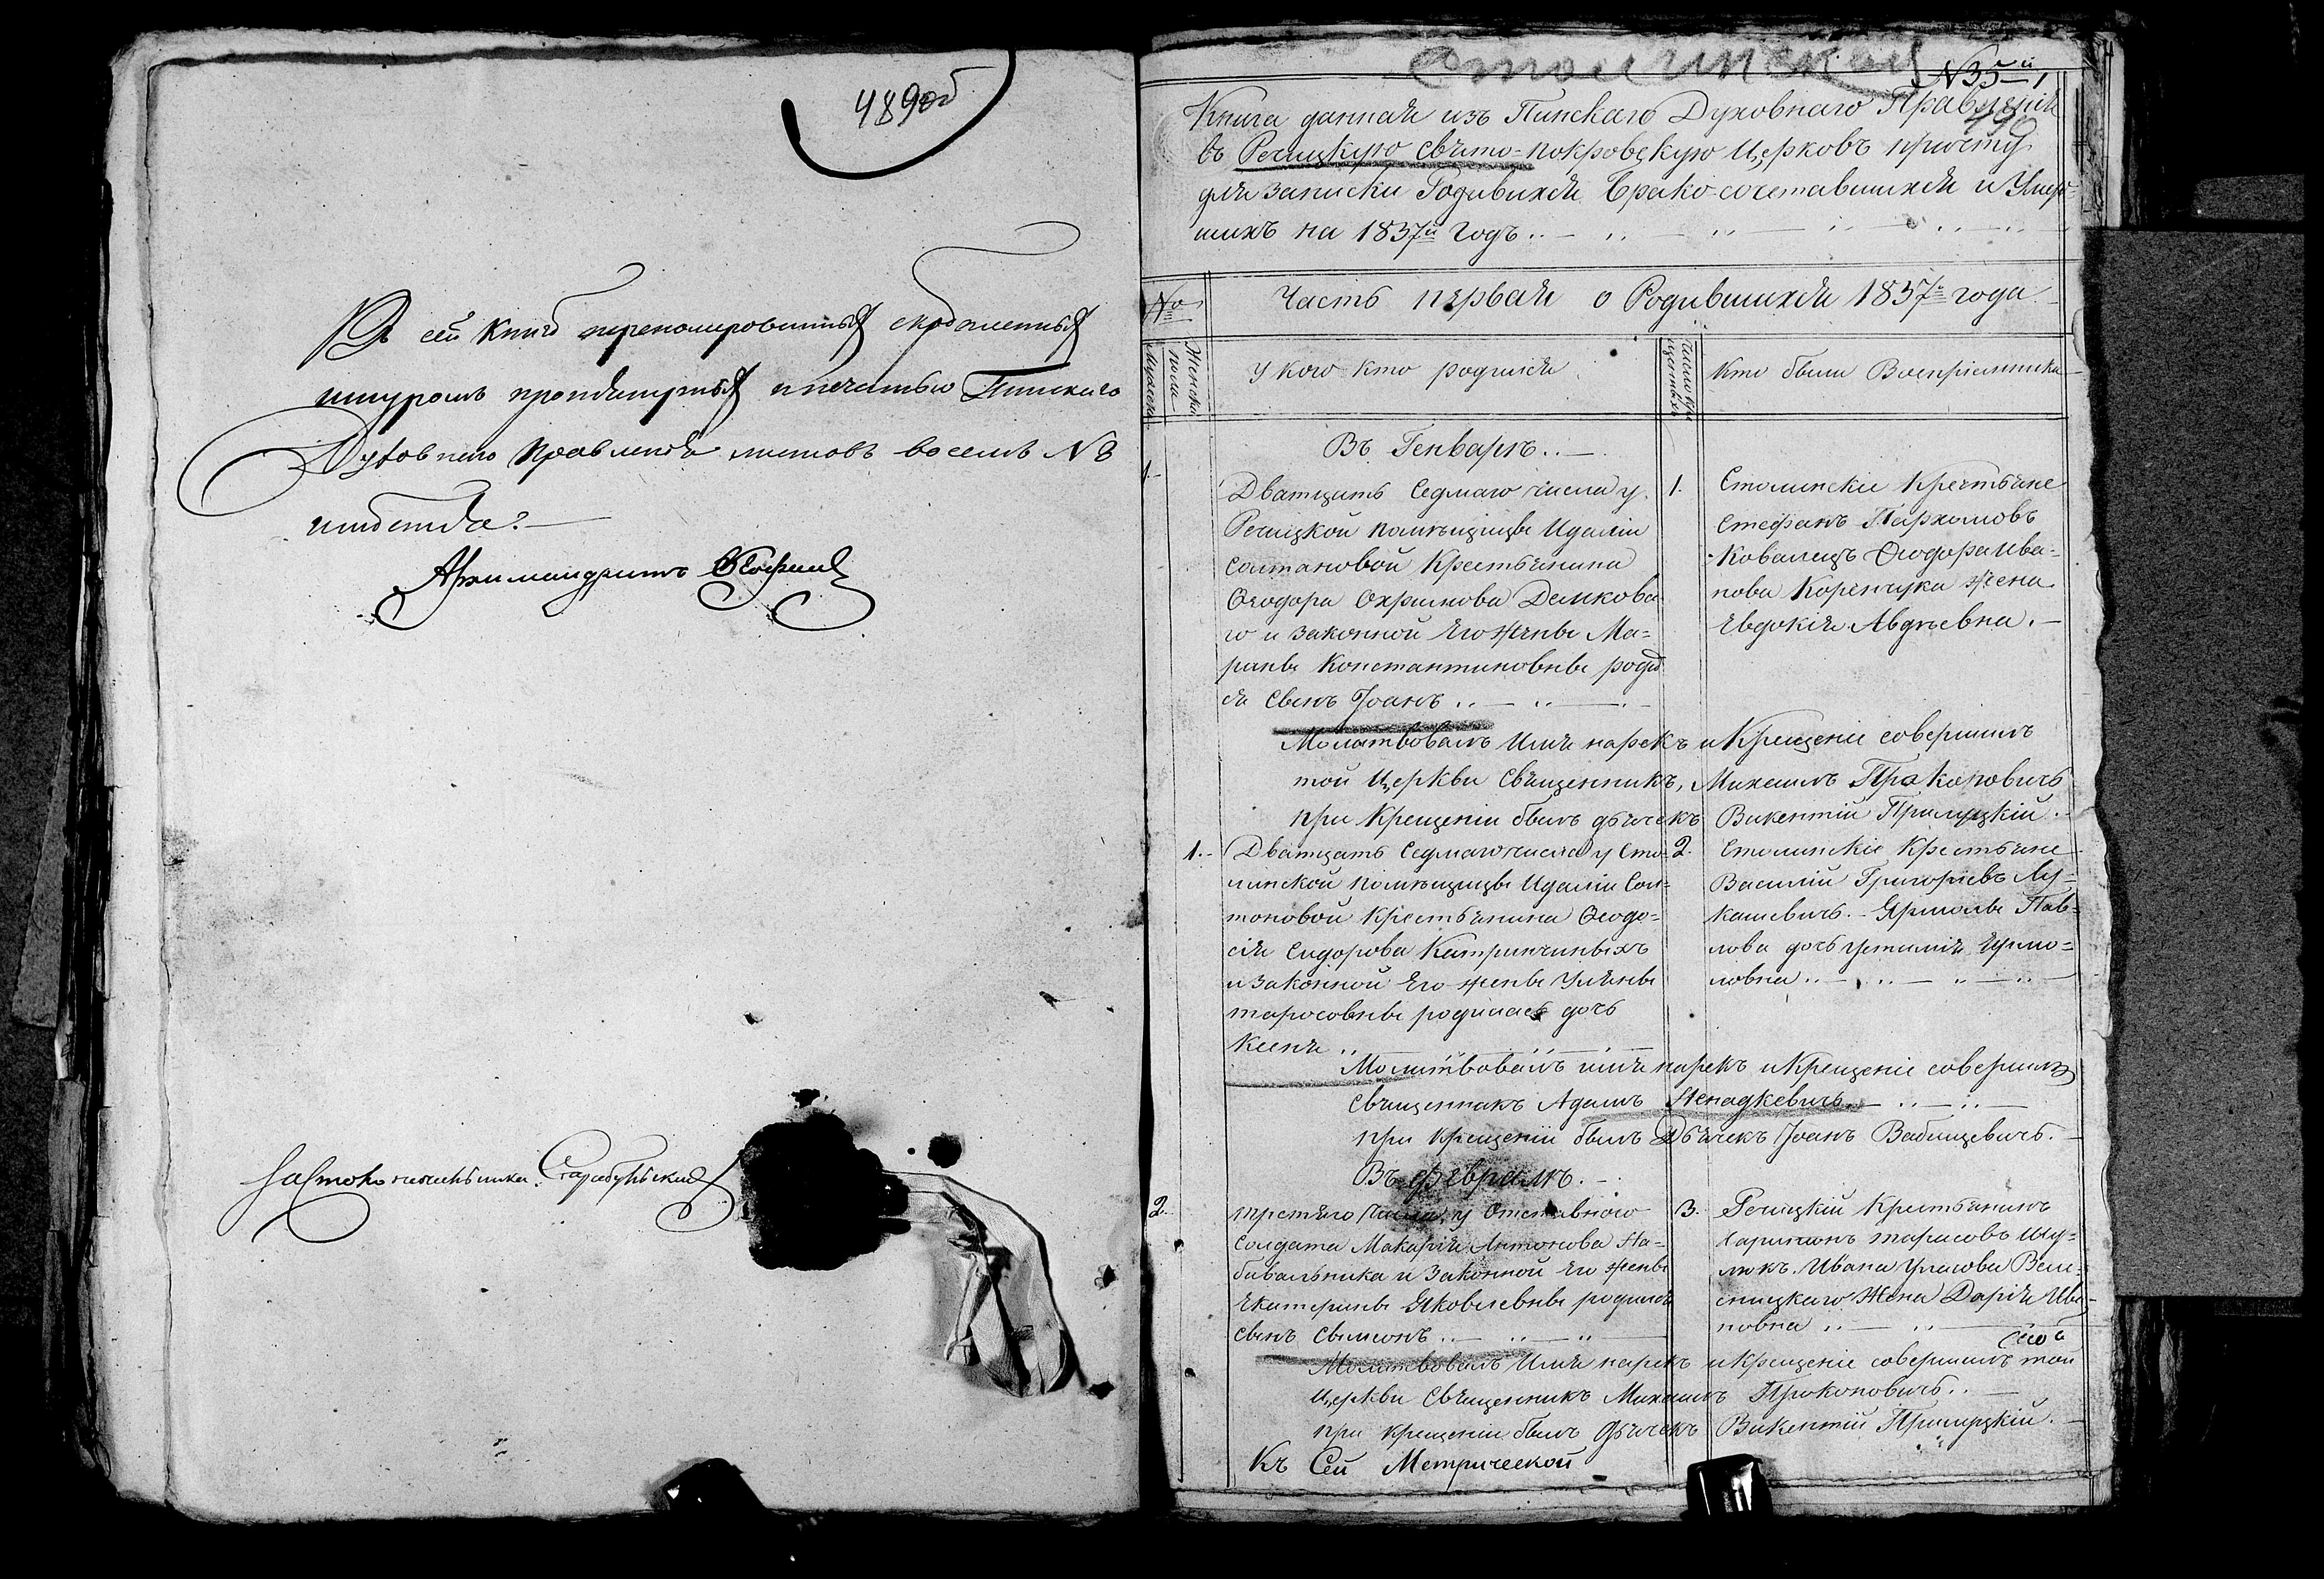 489 об
Въ сей книгѣ переномерованныхъ скрѣпленныхъ
шнуромъ протянутыхъ и печатью Пинскаго
Духовнаго Правленія листовъ восемь N 8
имѣется.
Архимандритъ
Столоначальника
Столинской
N 35й
1
490
Книга данная изъ Пинскаго Духовнаго Правленія
въ Речицкую Свято-покровскую Церковъ причту
для записки Родившихся Брако-сочетавшихся и Умер-
шихъ на 1837й Годъ
№
Часть первая о Родившихся 1837го года
Мужеска
Женска
пола
у кого кто родился
Число кре
щеныхъ
Кто были Воспріемники
Въ Генваре
1.
Дватцать Седмаго числа у
Речицкой помѣщицы Идаліи
Солтановой Крестьянина
Ѳеодора Охримова Демкова-
го и законной Его жены Ма-
рины Константиновны родил
ся Сынъ Іоанъ
1.
Столинскіе Крестьяне
Стефанъ Пархомовъ
Ковалецъ Ѳеодора Ива-
нова Коренчука жена
Евдокія Авдѣевна.
Молитвовалъ Имя нарекъ и Крещеніе совершилъ
той Церкви Священникъ, Михаилъ Прокоповичъ
при Крещеніи былъ дьячекъ Викентій Прилуцкій.
1.
Дватцать Седмаго числа у Сто-
линской помѣщицы Идаліи Сол-
тоновой Крестьянина Ѳеодо-
сія Сидорова Катринчиныхъ
и законной Его жены Ульяны
тарасовны родилась дочь
Ксеня
2.
Столинскіе Крестьяне
Василій Григорьевъ Лу-
кашевичъ. Ярмолы Пав-
лова дочь Устимія Ярмо-
ловна
Молитвовалъ имя нарекъ и Крещеніе совершилъ
Священникъ Адамъ Ненадкевичъ
при крещеніи былъ Дьячекъ Іоанъ Вабищевичъ.
Въ февралѣ.
2.
третяго числа у Отставного
Солдата Макарія Антонова На-
бивальника и законной Его жены
Екатерины Яковлевны родился
сынъ Сымеонъ
3.
Речицкій Крестьянинъ
Харитонъ тарасовъ Шу-
люкъ. Ивана Уласова Вели-
сницкаго Жена Дарія Ива-
новна
Молитвовалъ Имя нарекъ и Крещеніе совершилъ той
Церкви Священникъ Михаилъ Прокоповичъ.
при крещеніи былъ Дьячекъ Викентій Прилуцкій.
Къ Сей Метрической